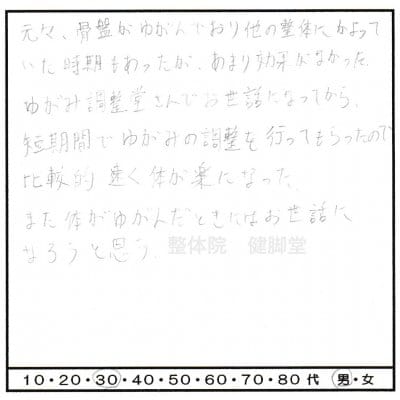 元々、骨盤がゆがんでおり他の整体にかよって
いた時期もあったが、あまり効果がなかった。
ゆがみ調整堂さんでお世話になってから、
短期間でゆがみの調整を行ってもらったので
比較的 速く体が楽になった。
また体がゆがんだときにはお世話に
なろうと思う。 整体院 健脚堂
10・20・30・40・50・60・70・80 代 男・女